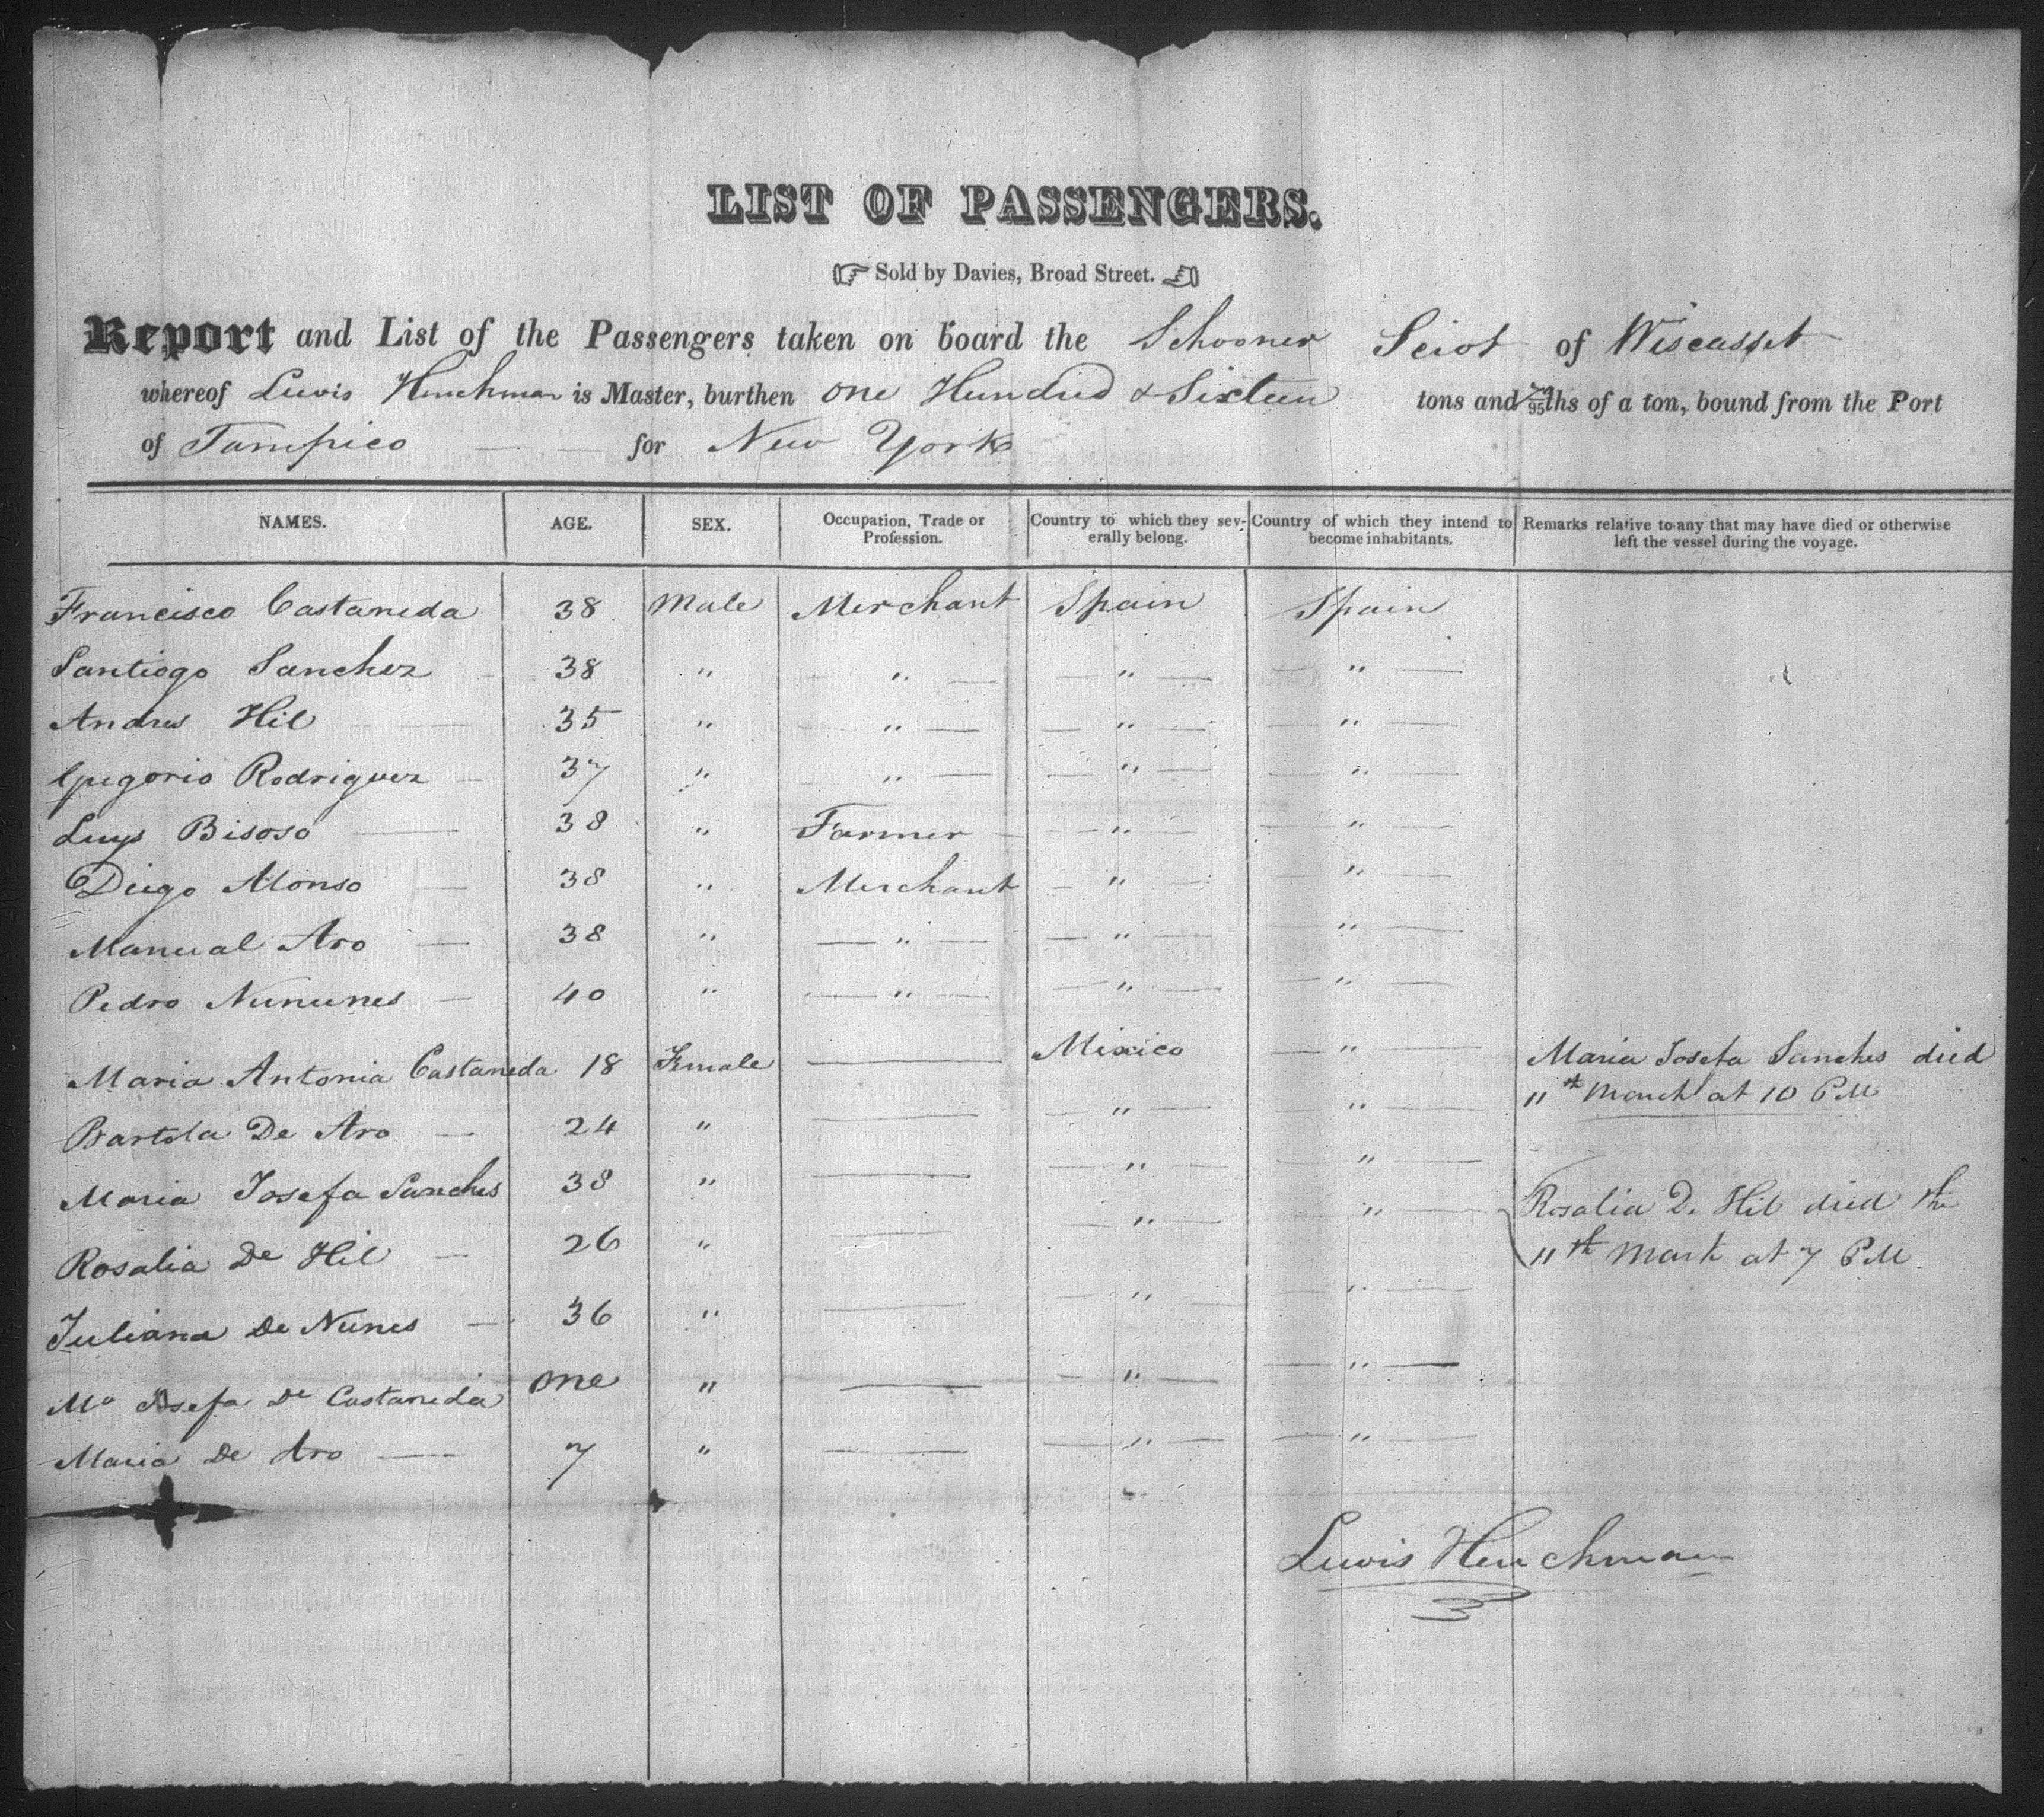 LIST OF PASSENGERS.
Sold by Davies, Broad Street.
Report and List of the Passengers taken on board the Schooner Sciot of Wiscasset
whereof Lewis Henchman is Master, burthen one Hundred & Sixteen tons and /95ths of a ton, bound from the Port
of Tampico for New York
NAMES. AGE. SEX. Occupation, Trade or Profession. Country to which they severally belong. Country of which they intend to become inhabitants. Remarks relative to any that may have died or otherwise left the vessel during the voyage.
Francisco Castaneda 38 Male Merchant Spain Spain
Santiogo Sanchez 38 " " " "
Andres Hil 35 " " " "
Gregorio Rodriguez 37 " " " "
Luys Bisoso 38 " Farmer " "
Diego Alonso 38 " Merchant " "
Manual Aro 38 " " " "
Pedro Nununes 40 " " " "
Maria Antonia Castaneda 18 Female — Mexico " Maria Josefa Sanches died
11th March at 10 PM
Bartola De Aro 24 " — " "
Maria Josefa Sanches 38 " — " "
Rosalia De Hil 26 " — " " Rosalia D. Hil died the
11th March at 7 PM
Juliana De Nunes 36 " — " "
Ma Josefa De Castaneda one " — " "
Maria De Aro 7 " — " "
Lewis Henchman